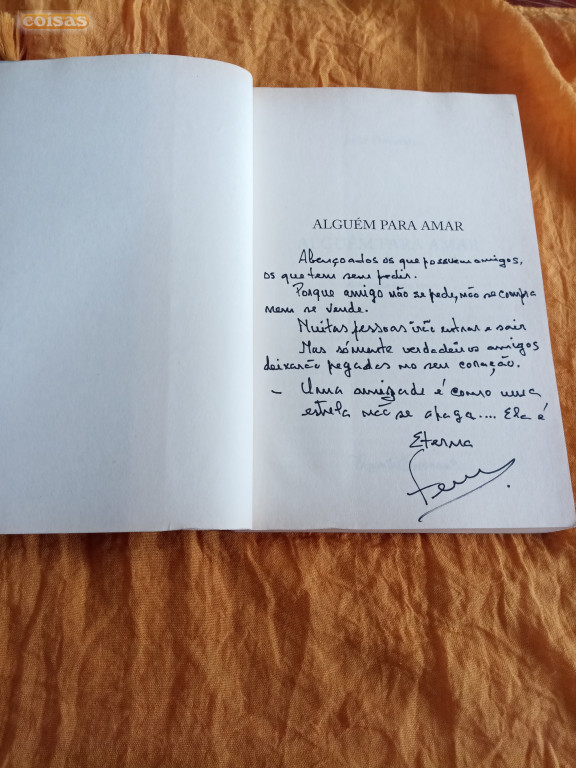 coisas
ALGUÉM PARA AMAR
Abençoados os que possuem amigos,
os que tem sem pedir.
Porque amigo não se pede, não se compra
nem se vende.
Muitas pessoas irão entrar e sair
Mas sómente verdadeiros amigos
deixarão pegadas no seu coração.
- Uma amizade é como uma
estrela não se apaga.... Ela é
Eterna